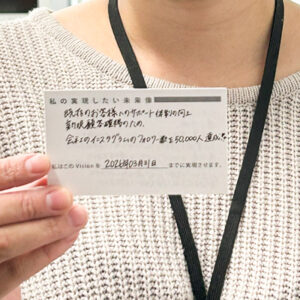 私の実現したい未来像
既存のお客様へのサポート体制の向上
新規顧客獲得のため、
会社のインスタグラムのフォロワー数を50,000人達成!
私はこのVisionを 2026年03月31日 までに実現させます。